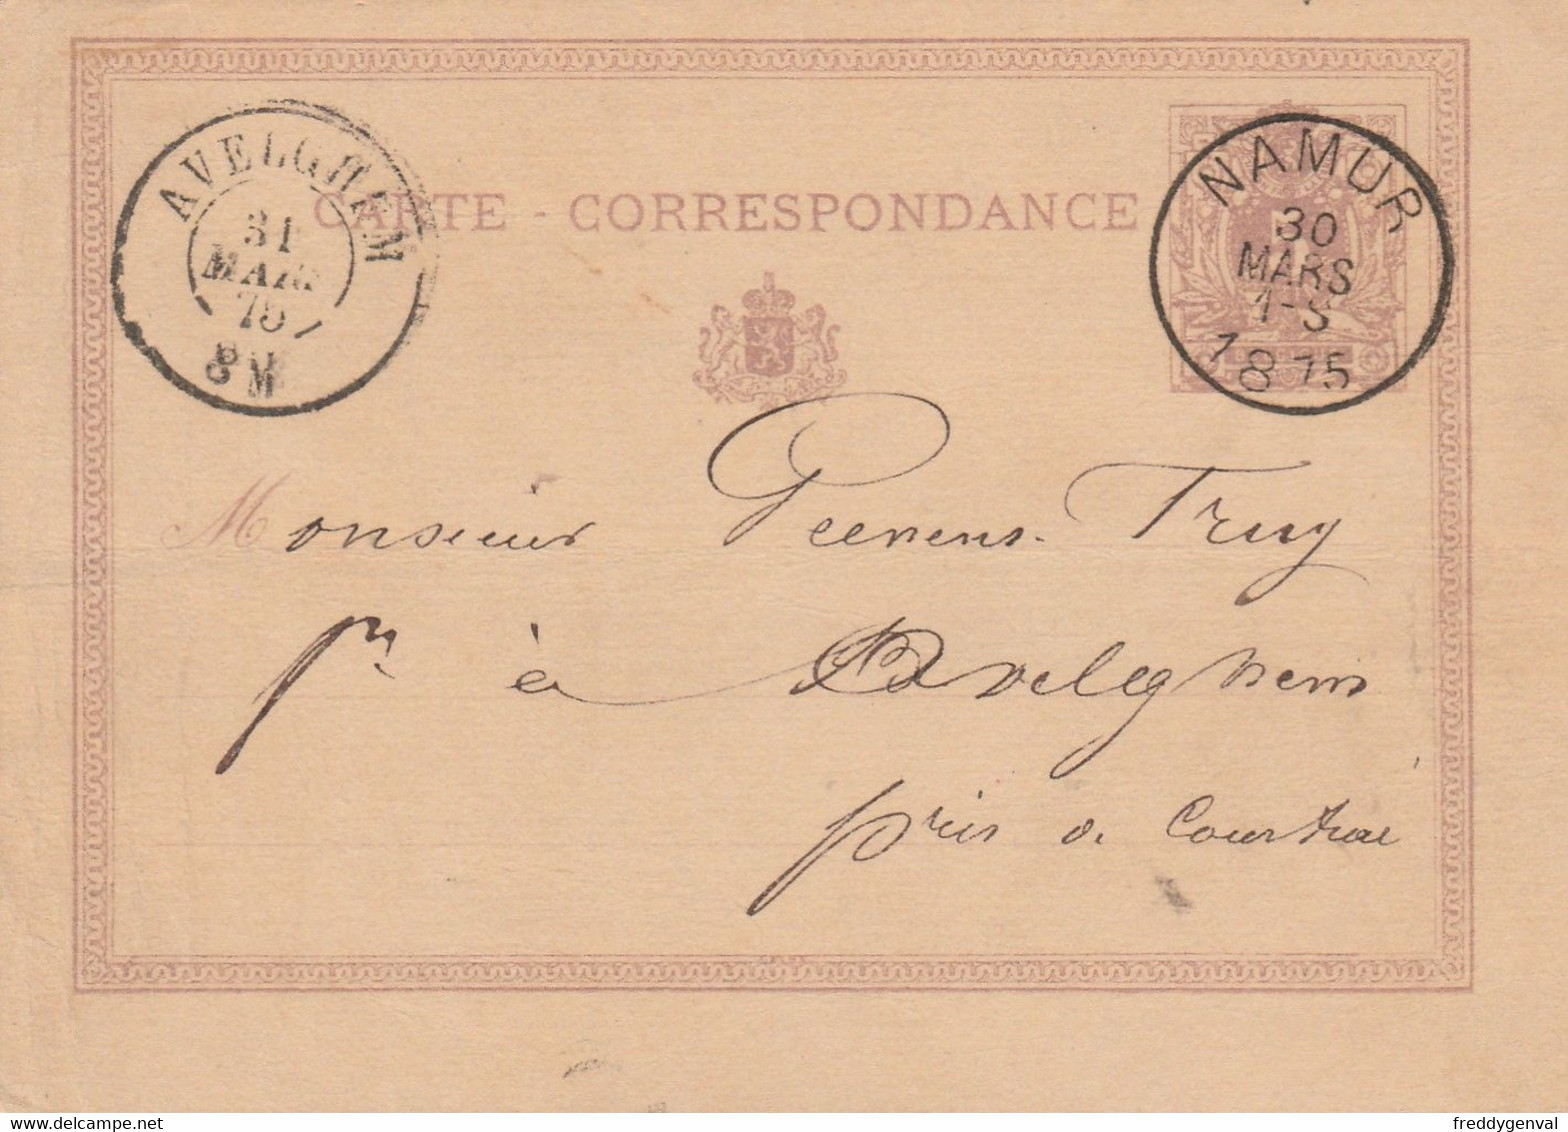 AVELGHEM
31
MARS
75
8 M
CARTE - CORRESPONDANCE
NAMUR
30
MARS
1-S
1875
Monsieur Peerens-Truy
à Aveleghem
près de Courtrai
delcampe.net
freddygenval